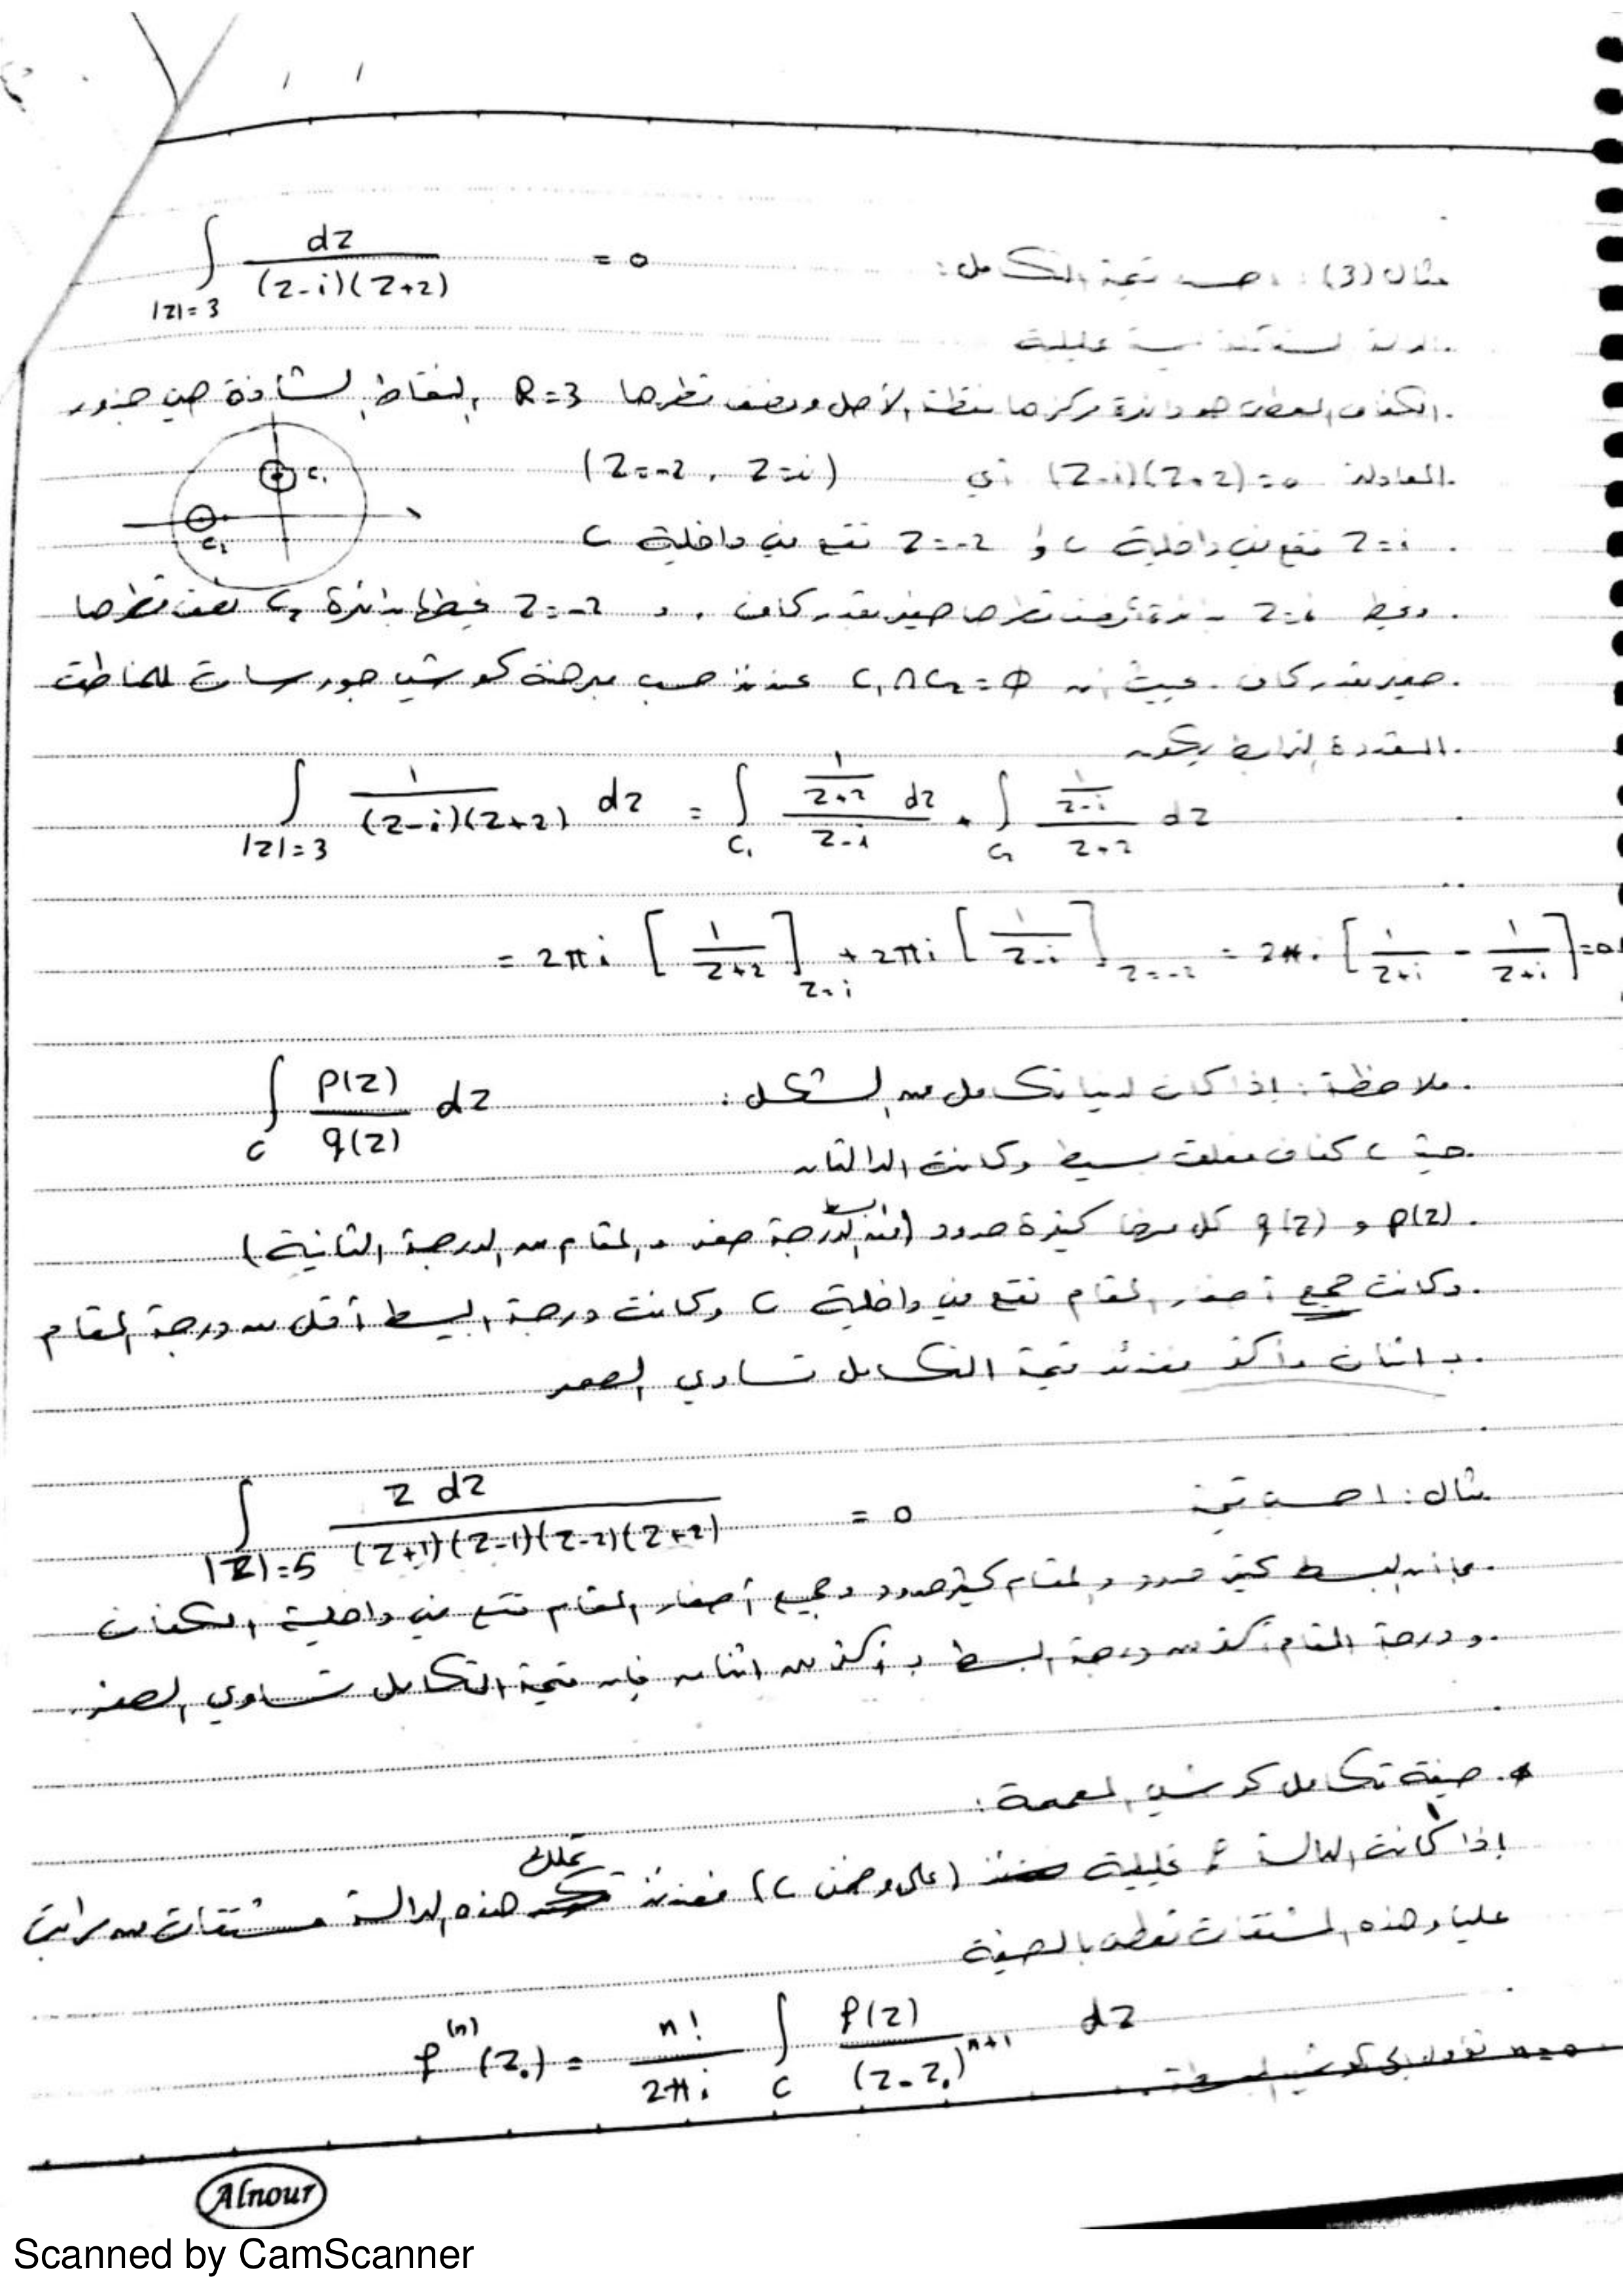 مثال (3): احسب قيمة التكامل: ∫_{|z|=3} dz/((z-i)(z+2)) = 0
ليست تحليلية
الكفاف المعطى هو دائرة مركزها نقطة الأصل ونصف قطرها R=3 والنقاط الشاذة هي جذور
المعادلة (z-i)(z+2)=0 أي (z=-2 , z=i)
z=i تقع في داخلية C و z=-2 تقع في داخلية C
C₁
C₂
نحيط z=i بدائرة نصف قطرها صغير بقدر كاف . و z=-2 نحيطها بدائرة C₂ نصف قطرها
صغير بقدر كاف بحيث أن C₁∩C₂=Φ عندئذ حسب مبرهنة كوشي جورسات للمناطق
المتعددة الترابط يكون
∫_{|z|=3} 1/((z-i)(z+2)) dz = ∫_{C₁} (1/(z+2))/(z-i) dz + ∫_{C₂} (1/(z-i))/(z+2) dz
= 2πi [1/(z+2)]_{z=i} + 2πi [1/(z-i)]_{z=-2} = 2πi [1/(2+i) - 1/(2+i)] = 0
ملاحظة: إذا كان لدينا تكامل من الشكل: ∫_C P(z)/q(z) dz
حيث C كفاف مغلق بسيط وكانت الدالتان
P(z) و q(z) كل منهما كثيرة حدود (البسط الدرجة صفر و المقام من الدرجة الثانية)
وكانت جميع أصفار المقام تقع في داخلية C وكانت درجة البسط أقل من درجة المقام
بـ اثنان وأكثر فعندئذ قيمة التكامل تساوي الصفر
مثال: احسب قيمة ∫_{|z|=5} z dz/((z+1)(z-1)(z-2)(z+2)) = 0
بما أن البسط كثير حدود و المقام كثير حدود و جميع أصفار المقام تقع في داخلية الكفاف
و درجة المقام أكبر من درجة البسط بـ أكثر من اثنان فإن قيمة التكامل تساوي الصفر.
صيغة تكامل كوشي المعممة:
إذا كانت الدالة f تحليلية (على وضمن C) فعندئذ تملك هذه الدالة مشتقات من مراتب
عليا وهذه المشتقات تعطى بالصيغة
f^{(n)}(z₀) = n!/(2πi) ∫_C f(z)/(z-z₀)^{n+1} dz
Alnour
Scanned by CamScanner